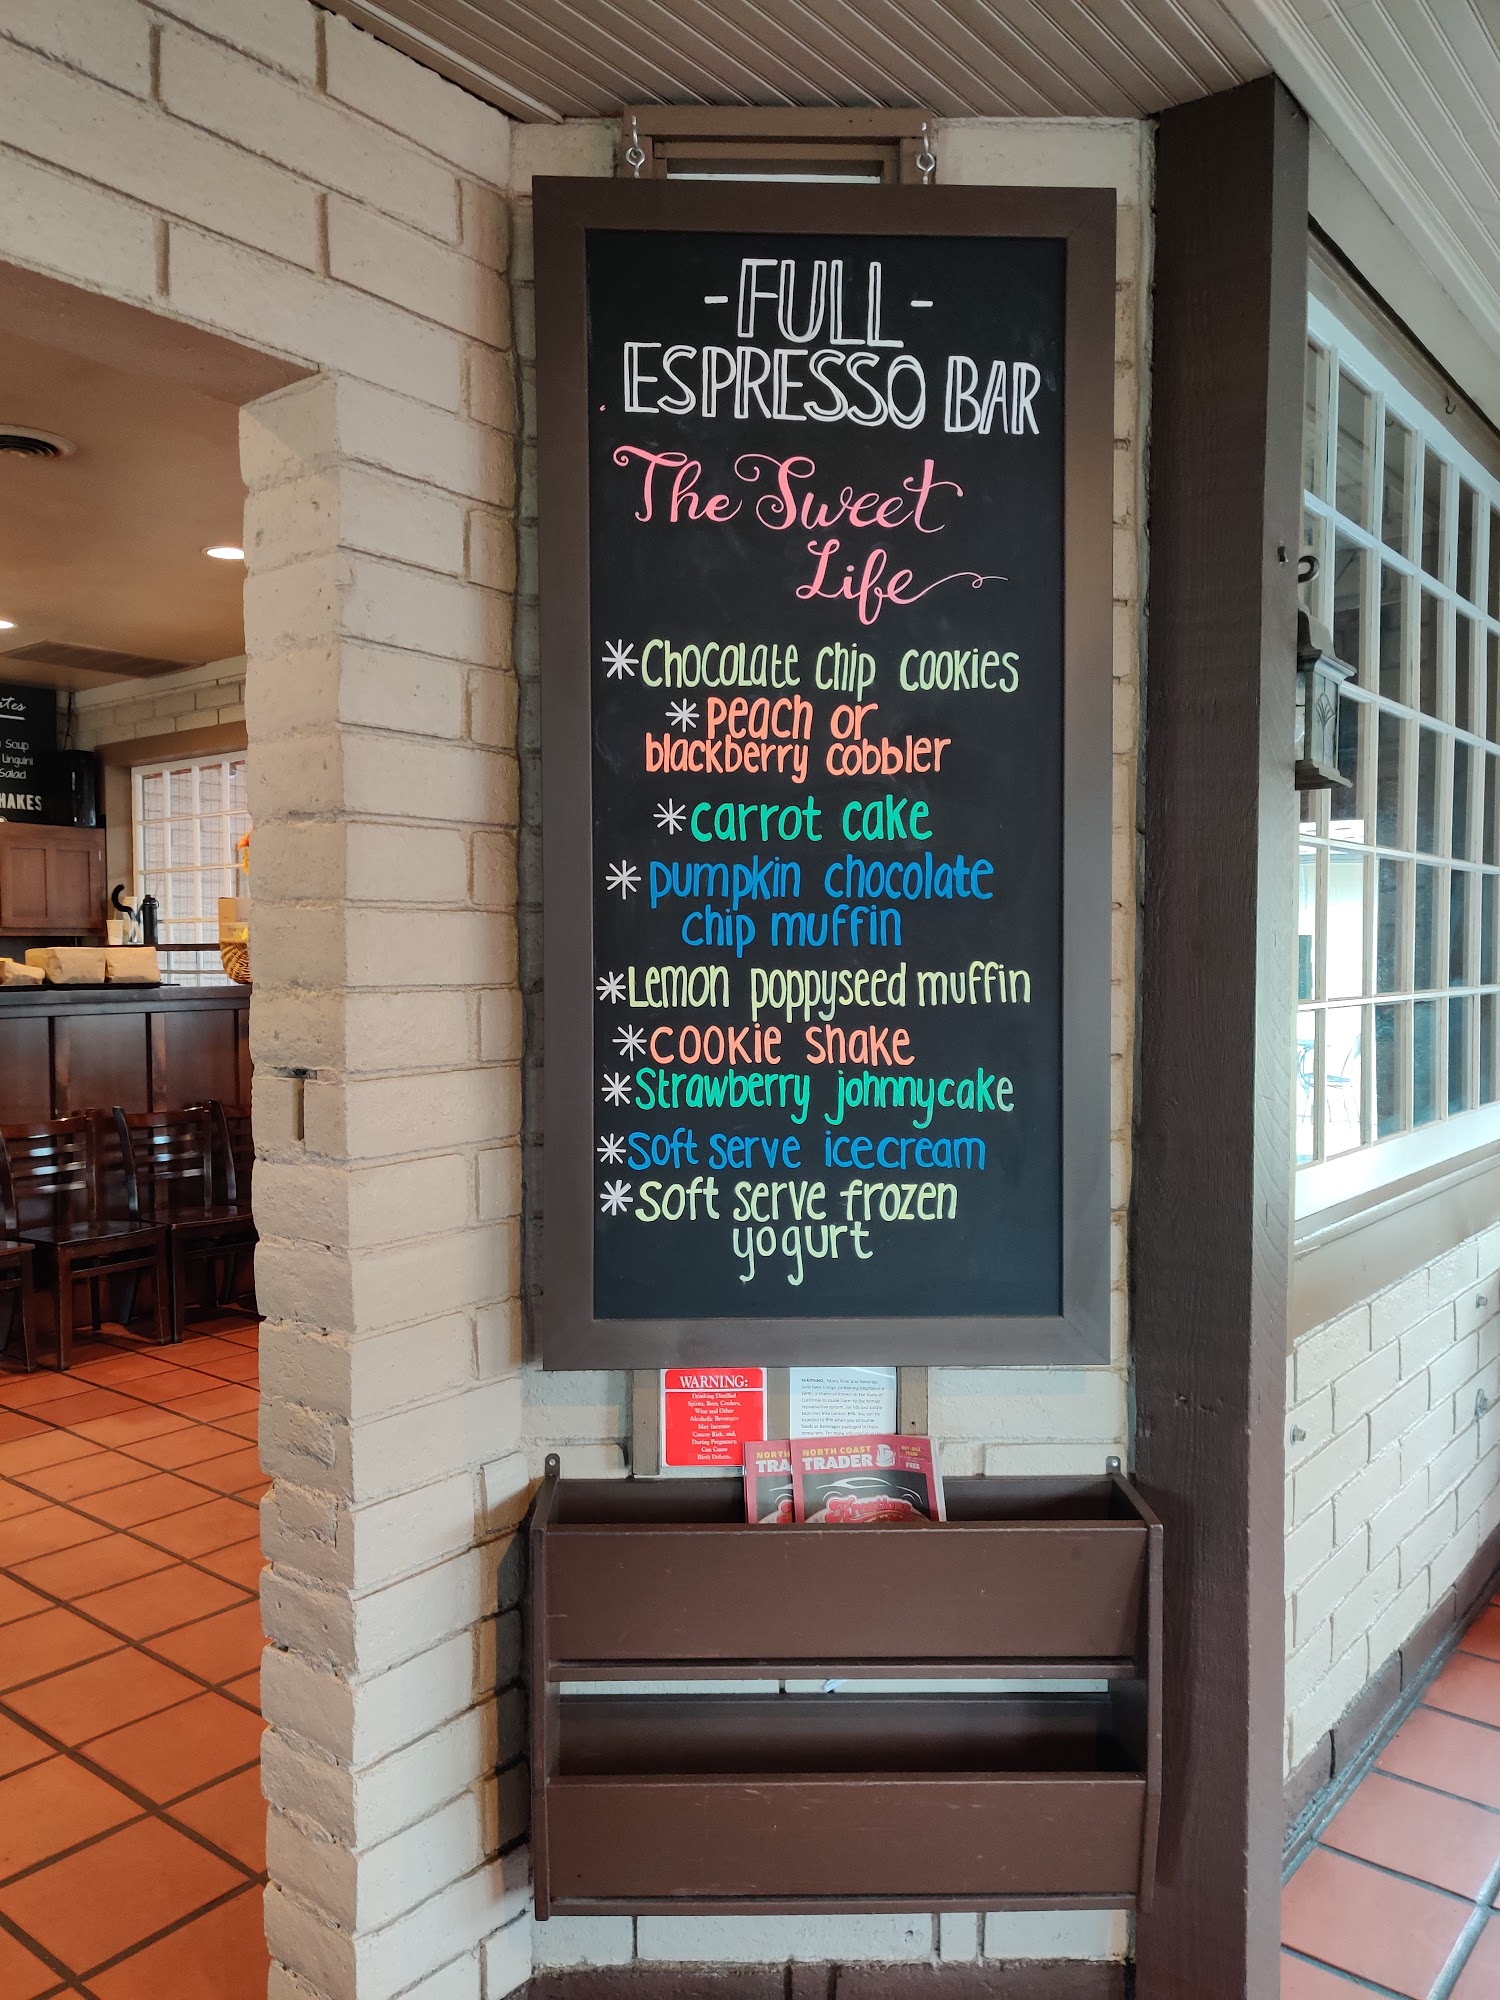 -FULL-
ESPRESSO BAR
The Sweet
Life
*Chocolate chip cookies
*peach or
blackberry cobbler
*carrot cake
*pumpkin chocolate
chip muffin
*Lemon poppyseed muffin
*cookie shake
*Strawberry johnnycake
*soft serve icecream
*soft serve frozen
yogurt
Soup
Linguini
Salad
HAKES
WARNING:
Drinking Distilled
Spirits, Beer, Coolers,
Wine and Other
Alcoholic Beverages
May Increase
Cancer Risk, and,
During Pregnancy,
Can Cause
Birth Defects.
WARNING: Many food and beverage
NORTH
TRA
NORTH COAST
TRADER
FREE